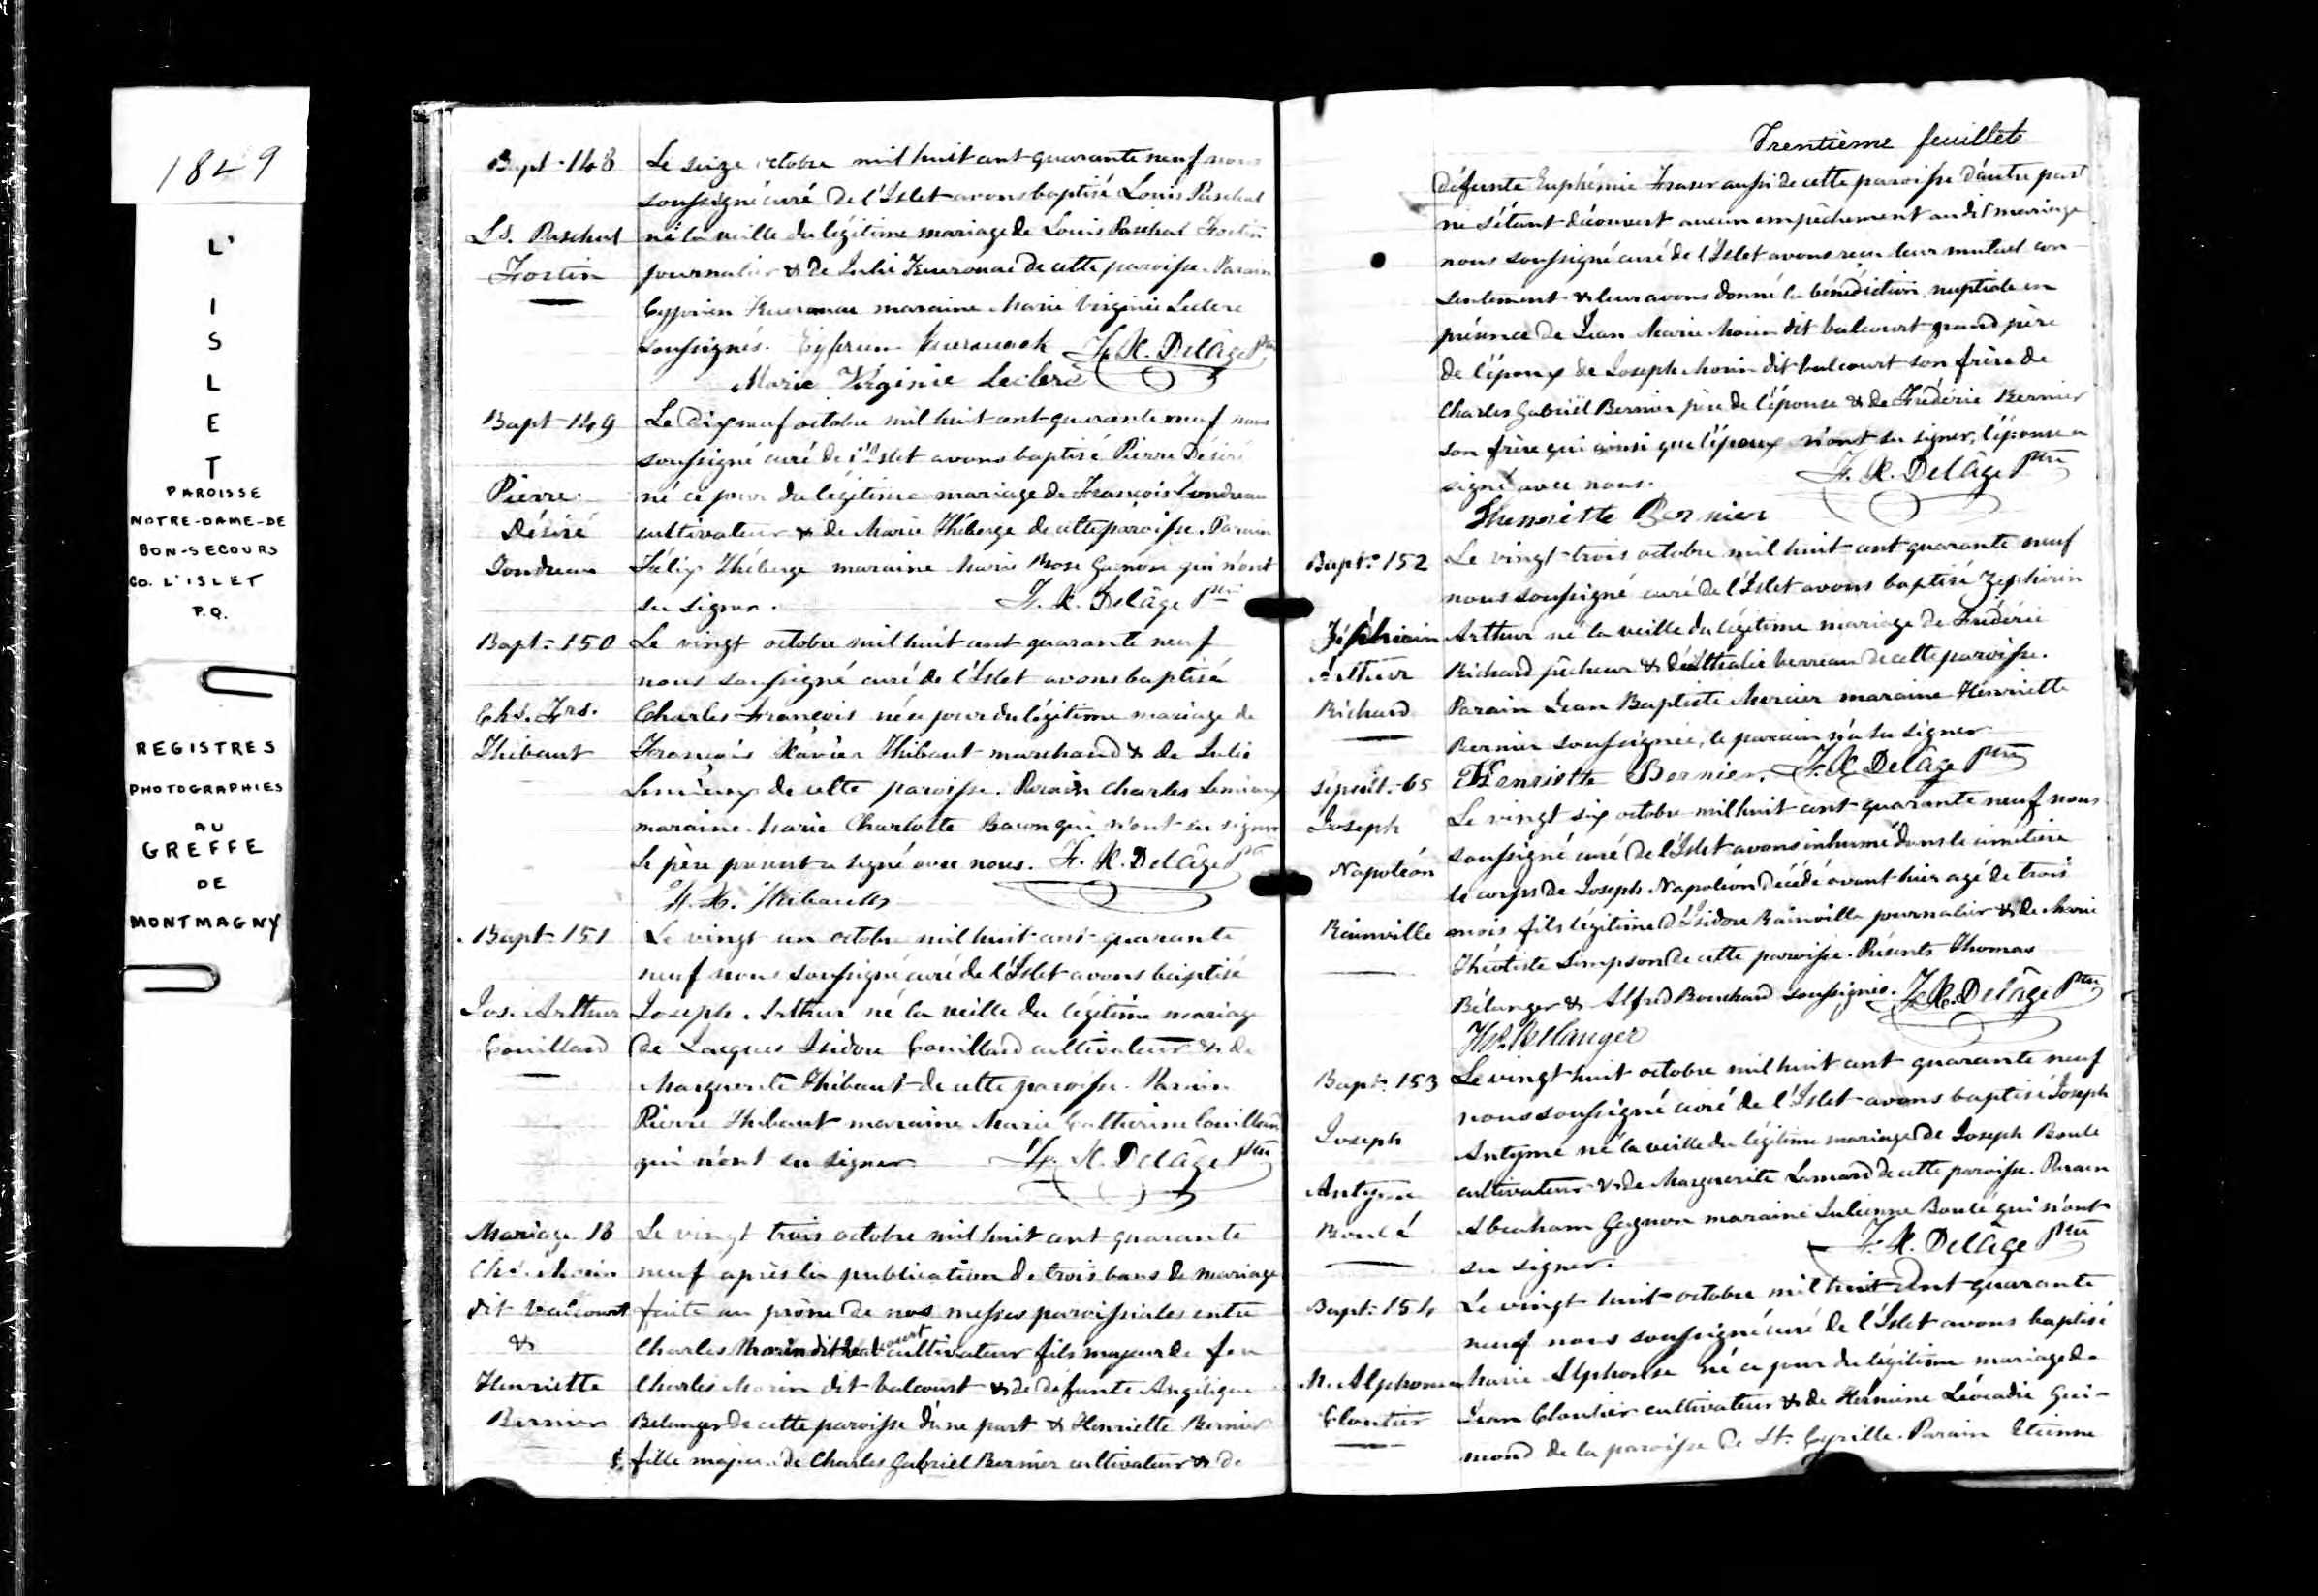 1849
L'
I
S
L
E
T
PAROISSE
NOTRE-DAME-DE
BON-SECOURS
CO. L'ISLET
P.Q.
REGISTRES
PHOTOGRAPHIES
AU
GREFFE
DE
MONTMAGNY
Bapt-148
Ls. Paschal
Fortin
Le seize octobre mil huit cent quarante neuf nous
soussigné curé de l'Islet avons baptisé Louis Paschal
né la veille du légitime mariage de Louis Paschal Fortin
journalier & de Julie Keurouac de cette paroisse. Parain
Cyprien Keurouac maraine Marie Virginie Leclerc
soussignés. Cyprien Keurouack F. X. Delâge Ptre
Marie Virginie Leclerc
Bapt-149
Pierre
Désiré
Tondreau
Le dix neuf octobre mil huit cent quarante neuf nous
soussigné curé de l'Islet avons baptisé Pierre Désiré
né ce jour du légitime mariage de François Tondreau
cultivateur & de Marie Théberge de cette paroisse. Parain
Félix Théberge maraine Marie Rose Gagnon qui n'ont
su signer. F. X. Delâge Ptre
Bapt-150
Chs. Frs.
Thibaut
Le vingt octobre mil huit cent quarante neuf
nous soussigné curé de l'Islet avons baptisé
Charles François né ce jour du légitime mariage de
François Xavier Thibaut marchand & de Julie
Lemieux de cette paroisse. Parain Charles Lemieux
maraine Marie Charlotte Bacon qui n'ont su signer
le père présent a signé avec nous. F. X. Delâge Ptre
F. X. Thibault
Bapt-151
Jos. Arthur
Couillard
Le vingt un octobre mil huit cent quarante
neuf nous soussigné curé de l'Islet avons baptisé
Joseph Arthur né la veille du légitime mariage
de Jacques Isidore Couillard cultivateur & de
Marguerite Thibaut de cette paroisse. Parain
Pierre Thibaut maraine Marie Catherine Couillard
qui n'ont su signer F. X. Delâge Ptre
Mariage 18
Chs. Morin
dit Valcourt
&
Henriette
Bernier
Le vingt trois octobre mil huit cent quarante
neuf après la publication de trois bans de mariage
faite au prône de nos messes paroissiales entre
Charles Morin dit Valcourt cultivateur fils majeur de feu
Charles Morin dit Valcourt & de défunte Angélique
Belanger de cette paroisse d'une part & Henriette Bernier
fille majeure de Charles Gabriel Bernier cultivateur & de
Trentième feuillet
défunte Euphémie Fraser aussi de cette paroisse d'autre part
ne s'étant découvert aucun empêchement au dit mariage
nous soussigné curé de l'Islet avons reçu leur mutuel con-
sentement & leur avons donné la bénédiction nuptiale en
présence de Jean Marie Morin dit Valcourt grand père
de l'époux de Joseph Morin dit Valcourt son frère de
Charles Gabriel Bernier père de l'épouse & de Frédéric Bernier
son frère qui ainsi que l'époux n'ont su signer, l'épouse a
signé avec nous. F. X. Delâge Ptre
Henriette Bernier
Bapt-152
Zéphirin
Arthur
Richard
Le vingt-trois octobre mil huit cent quarante neuf
nous soussigné curé de l'Islet avons baptisé Zéphirin
Arthur né la veille du légitime mariage de Frédéric
Richard pêcheur & d'Athalie Verreau de cette paroisse.
Parain Jean Baptiste Mercier maraine Henriette
Bernier soussignée, le parain n'a su signer
Henriette Bernier. F. X. Delâge Ptre
Sépult-65
Joseph
Napoléon
Rainville
Le vingt six octobre mil huit cent quarante neuf nous
soussigné curé de l'Islet avons inhumé dans le cimetière
le corps de Joseph Napoléon décédé avant hier agé de trois
mois fils légitime d'Isidore Rainville journalier & de Marie
Théotiste Simpson de cette paroisse. Présents Thomas
Bélanger & Alfred Bouchard soussignés. F. X. Delâge Ptre
Ths. Bellanger
Bapt-153
Joseph
Antyme
Boulé
Le vingt huit octobre mil huit cent quarante neuf
nous soussigné curé de l'Islet avons baptisé Joseph
Antyme né la veille du légitime mariage de Joseph Boulé
cultivateur & de Marguerite Lamard de cette paroisse. Parain
Abraham Gagnon maraine Julienne Boulé qui n'ont
su signer. F. X. Delâge Ptre
Bapt-154
M. Alphonse
Cloutier
Le vingt huit octobre mil huit cent quarante
neuf nous soussigné curé de l'Islet avons baptisé
Marie Alphonse né ce jour du légitime mariage de
Jean Cloutier cultivateur & de Hermine Léocadie Gui-
mond de la paroisse de St. Cyrille. Parain Etienne